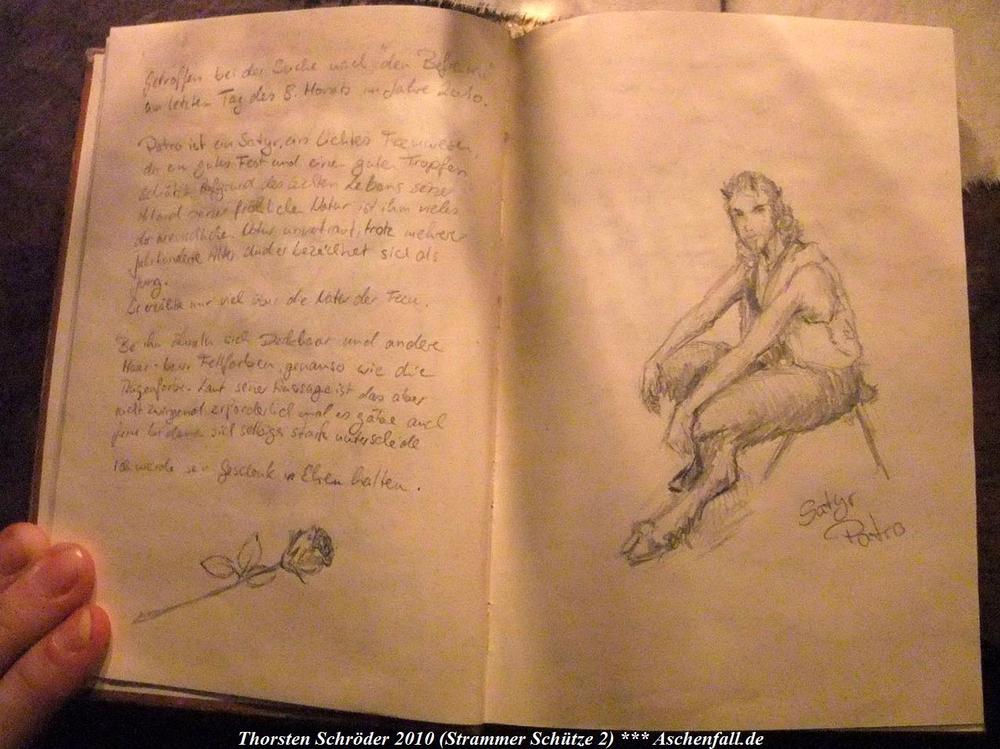 Getroffen bei der Suche nach "den
am letzten Tag des 8. Monats im Jahre 2010.
Potro ist ein Satyr, ein lichtes Feenwesen,
der ein gutes Fest und einen guten Tropfen
schätzt. Aufgrund des Lebens seiner
seiner fröhlichen Natur ist ihm vieles
der menschlichen Natur unvertraut, trotz mehrerer
jahrhunderte Alter, und er bezeichnet sich als
jung.
Er erzählte mir viel über die Natur der Feen.
Bei ihm ähneln sich und andere
Haar- bzw. Fellfarben, genauso wie die
Augenfarbe. Laut seiner Aussage ist das aber
nicht zwingend erforderlich und es gäbe auch
jene bei denen sich selbige stark unterscheide
Ich werde sein Geschenk in Ehren halten.
Satyr
Potro
Thorsten Schröder 2010 (Strammer Schütze 2) *** Aschenfall.de